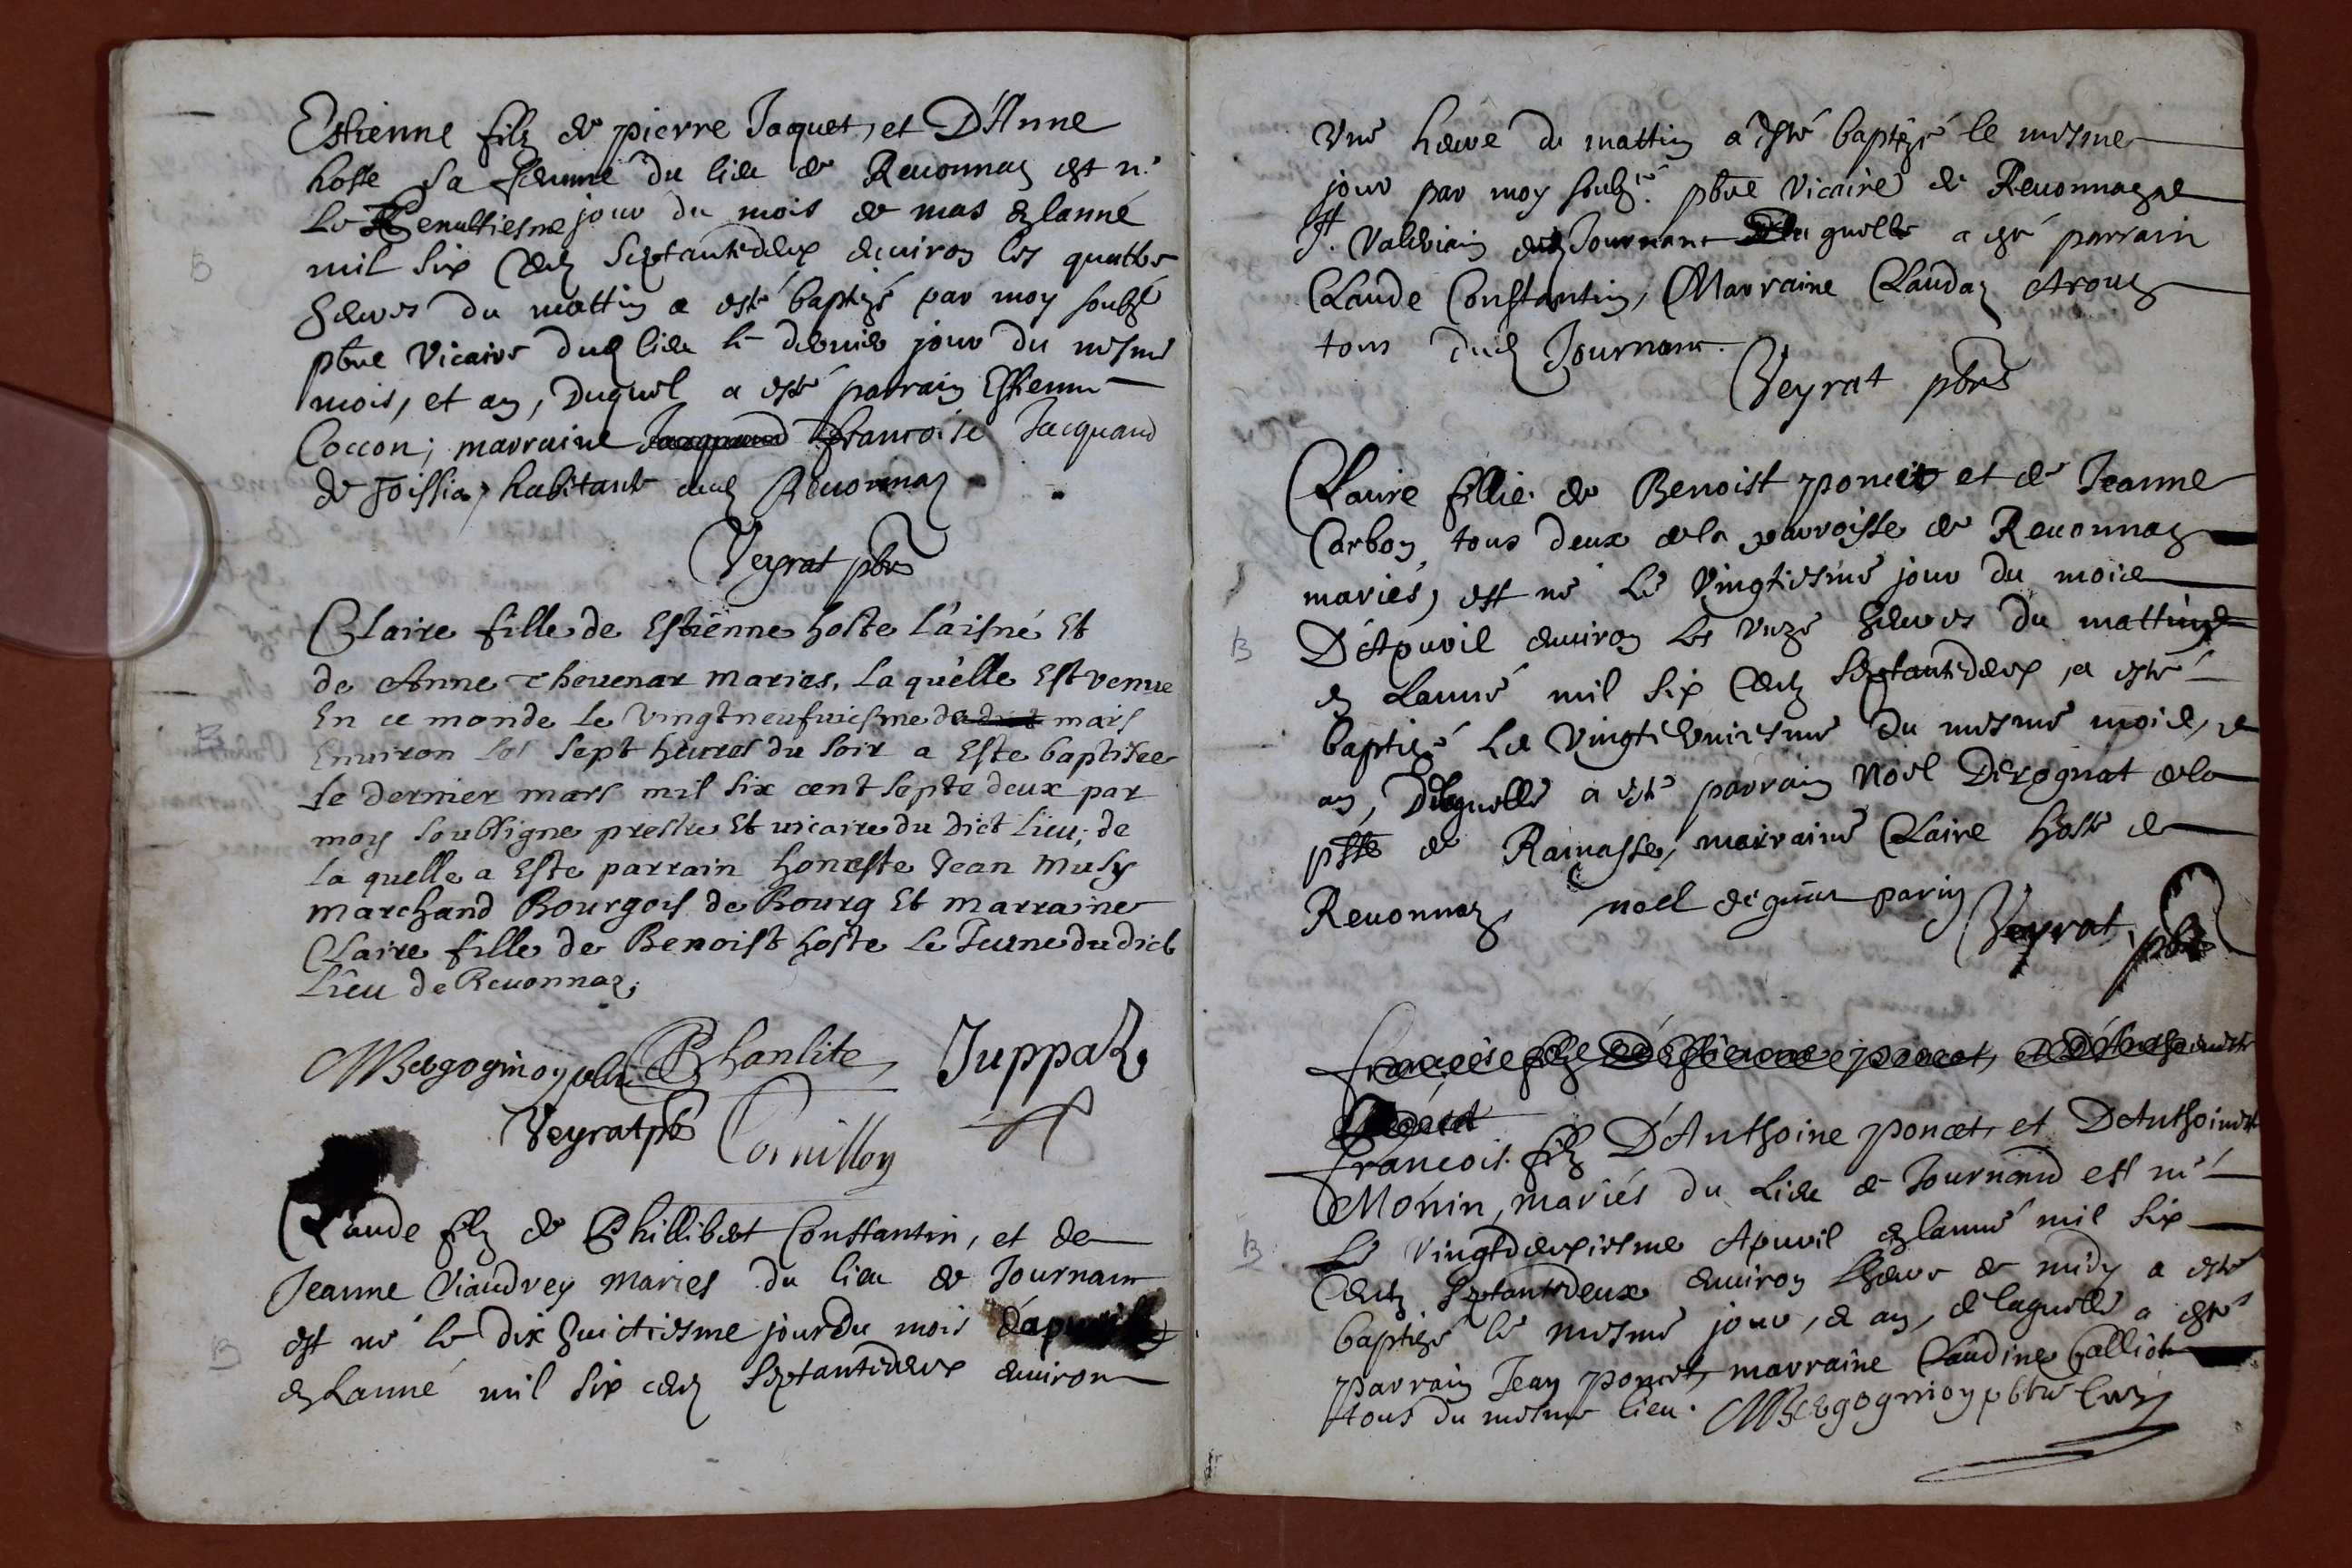 Estienne filz de pierre Jaquet, et D'Anne
hoste sa femme du lieu de Reuonnaz est né
Le penultiesme jour du mois de mas en lanné
mil six centz septantedeux enuiron les quattre
heures du mattin a esté baptizé par moy soubzé
pbre Vicaire dud lieu le dernier jour du mesme
mois, et an, Duquel a esté parrain Estienne
Coccon; marraine Jacquand francoise Jacquand
de Joissia, habitante aud Reuonnaz
Veyrat pbre
Claire fille de Estienne hoste l'aisné Et
de Anne Cheuenar maries, la quelle Est venue
En ce monde le vingtneufuiesme dudict mars
Enuiron les sept heures du soir a Este baptisee
le dernier mars mil six cent septe deux par
moy soubsigne prestre Et uicaire du Dict lieu; de
la quelle a Este parrain honeste Jean Musy
marchand Bourgois de Bourg Et marraine
Claire fille de Benoist hoste le Jeune du dict
lieu de Reuonnaz;
Bergogmoy pbr Phanlite Juppaz
Veyrat pb Cornillon
Claude filz de Phillibert Constantin, et de
Jeanne Viaudrey maries du lieu de Journans
est né le dix huictiesme jour du mois d'apuril
en Lanné mil six centz septantedeux enuiron
vne heure du mattin a esté baptizé le mesme
jour par moy soubzé. pbre Vicaire de Reuonnaz et
St. Valerain dud Journans Duquelle a esté parrain
Claude Constantin, Marraine Claudaz
tous dud Journans.
Veyrat pbre
Claire fillie de Benoist poncet et de Jeanne
Carbon tous deux de la parroisse de Reuonnaz
mariés, est né Le vingtiesme jour du moi de
D'Apuril enuiron Les vnze heures du mattin
en Lanné mil six centz septantedeux, a esté
baptizé Le vingt vniesme du mesme mois, et
an, Delaquelle a esté parrain Noel Derognat de la
psse de Ramasse, marraine Claire hoste de
Reuonnaz, noel parin Veyrat pbre
francois filz D'Estienne poncet, et D'Anthoinette

francois filz D'Anthoine poncet, et D'Anthoinette
Monin, mariés du Lieu de Journand est né
Le vingtdeuxiesme Apuril en lanné mil six
centz septantedeux enuiron Lheure de midy a esté
baptizé le mesme jour, et an, de laquelle a esté
parrain Jean poncet, marraine Claudine Calliot
tous du mesme lieu. Bergogmoy pbtre